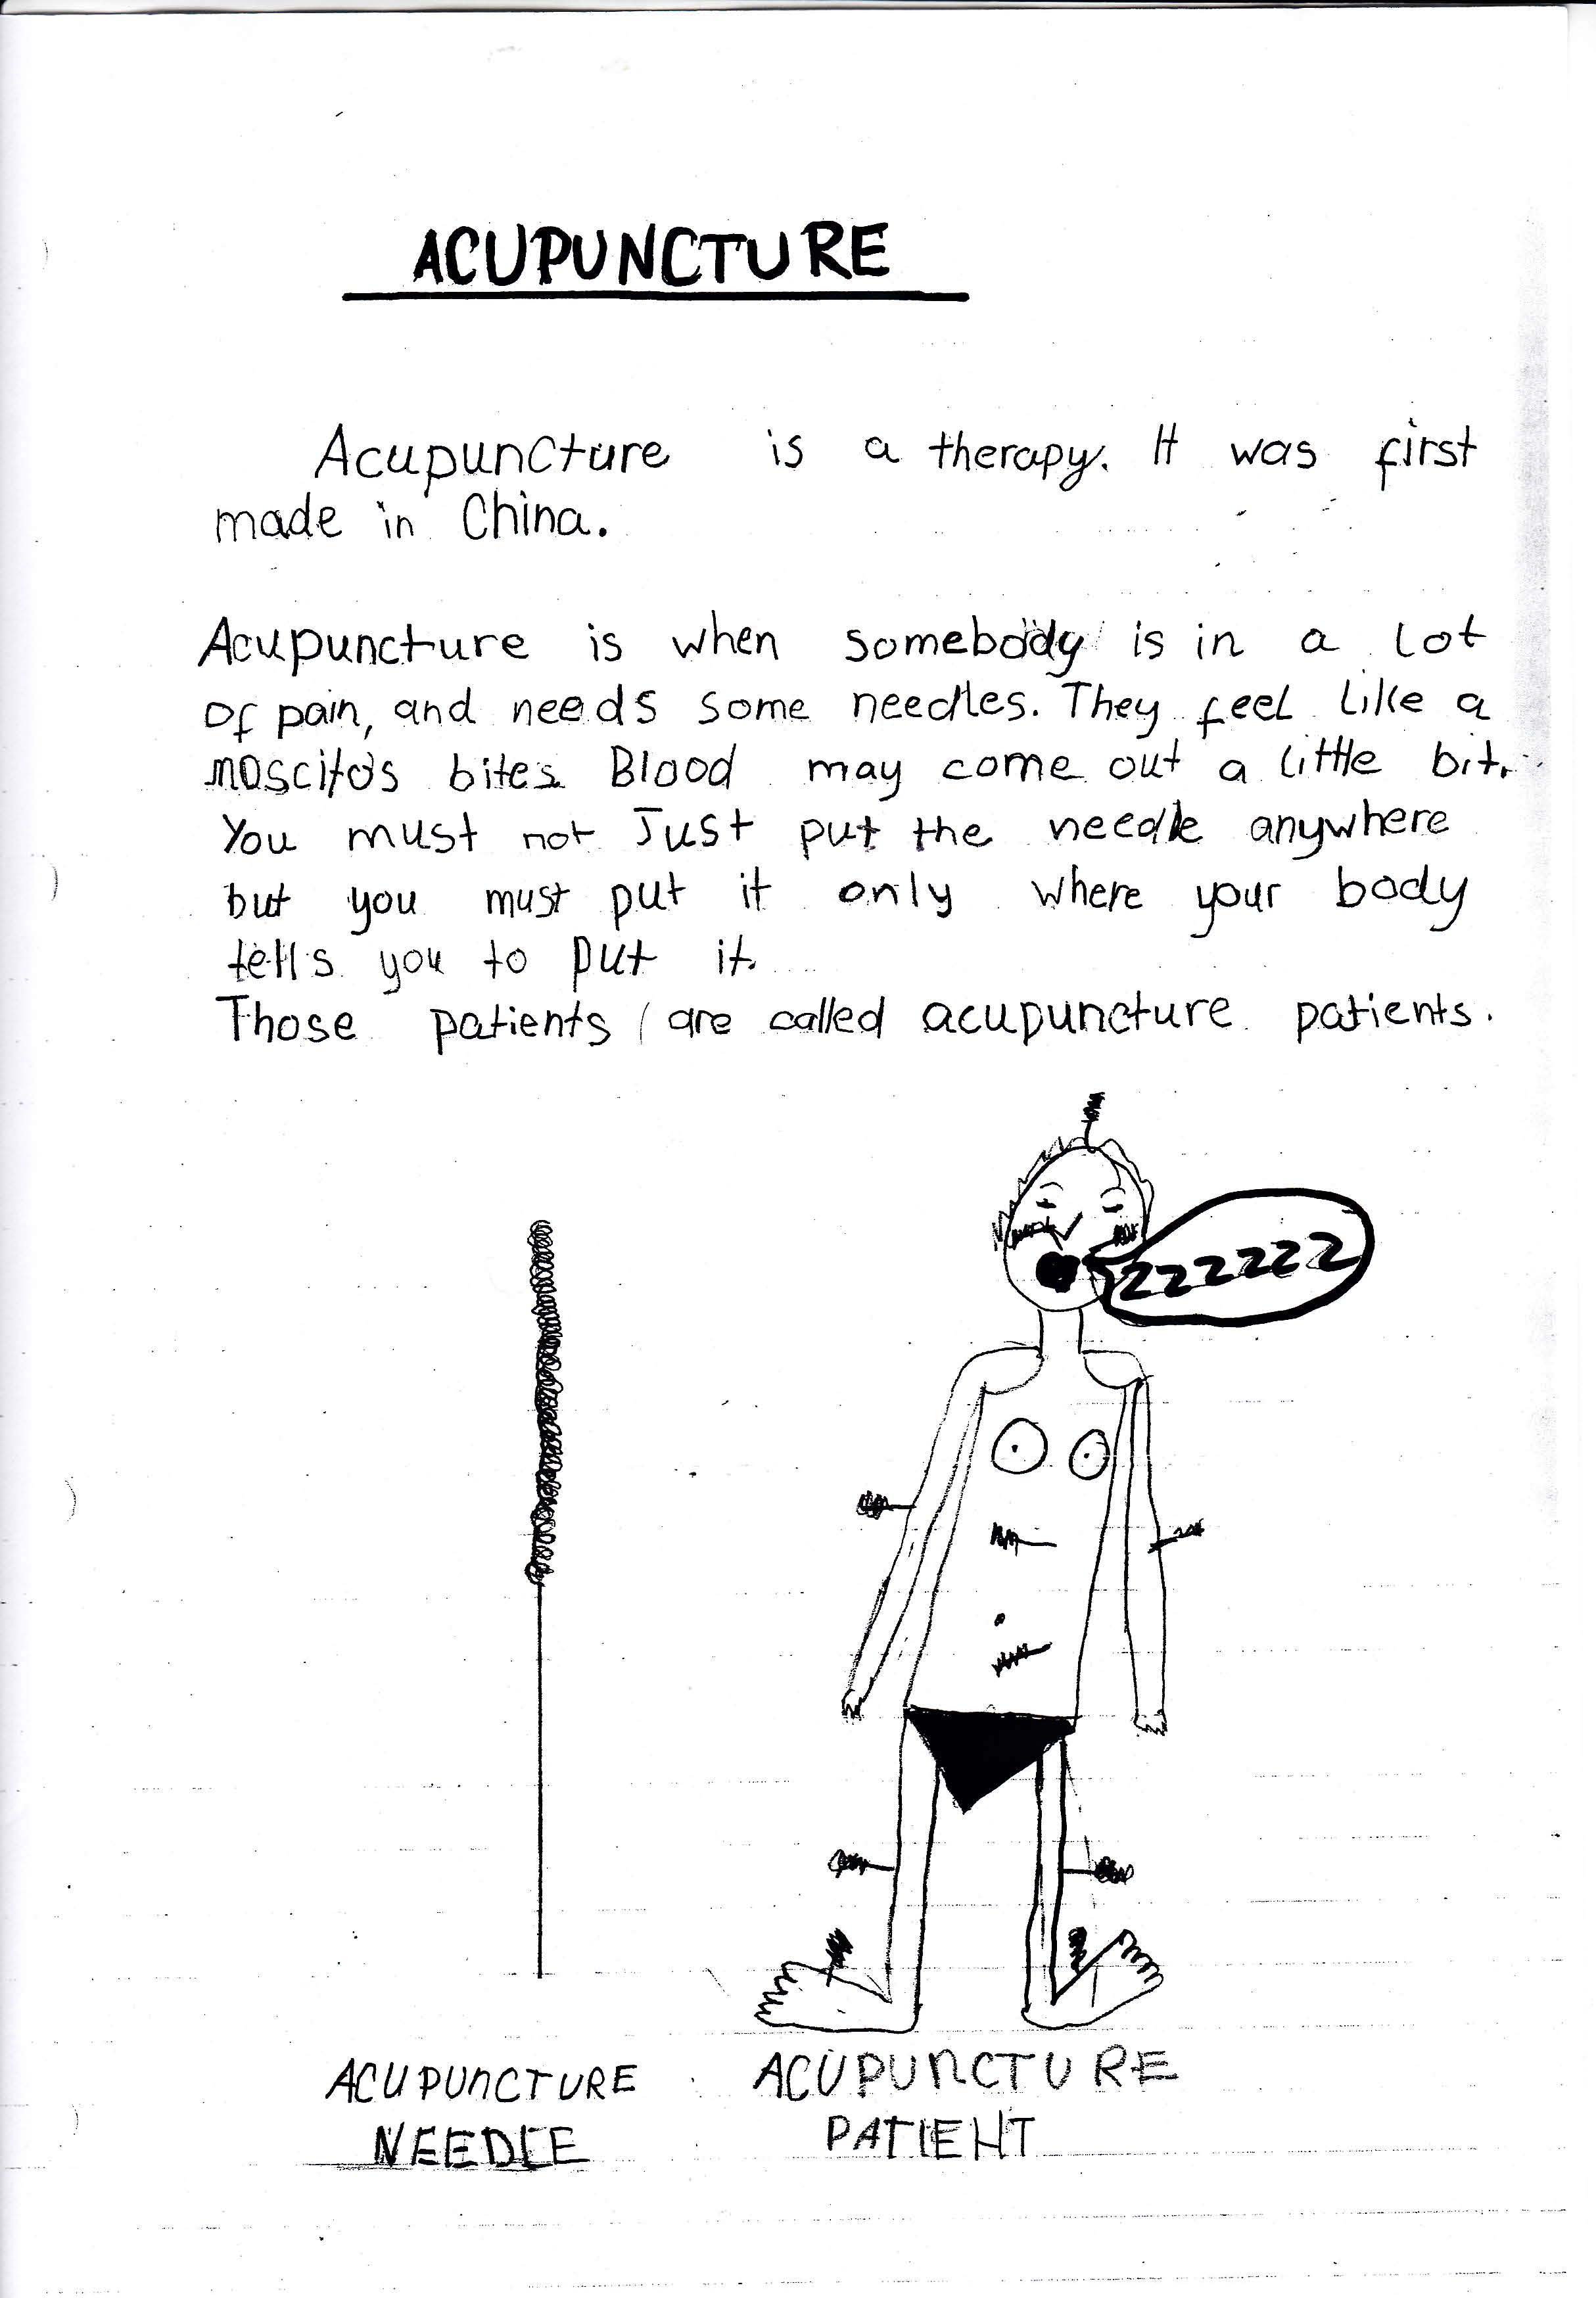 ACUPUNCTURE
Acupuncture is a therapy. It was first
made in China.
Acupuncture is when somebody is in a lot
of pain, and needs some needles. They feel like a
moscito's bites. Blood may come out a little bit.
You must not Just put the needle anywhere
but you must put it only where your body
tells you to put it.
Those patients are called acupuncture patients.
zzzzzz
ACUPUNCTURE
NEEDLE
ACUPUNCTURE
PATIENT